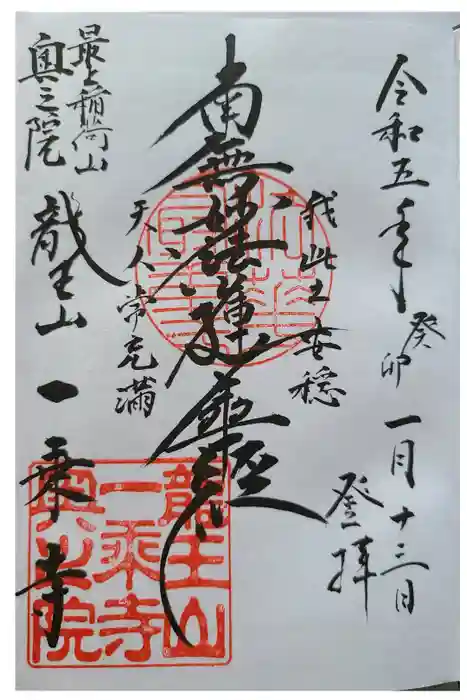 令和五年癸卯一月十三日
登拝
我此土安穏
南無妙法蓮華経
天人常充満
最上稲荷山
奥之院
龍王山一乗寺
龍王山
一乗寺
奥之院